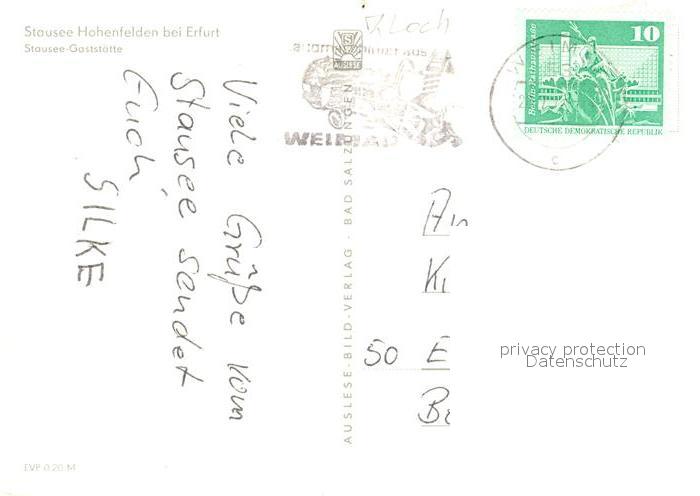 Stausee Hohenfelden bei Erfurt
Stausee-Gaststätte
Viele Grüße vom
Stausee sendet
Euch
SILKE
EVP 0.20 M
AUSLESE-BILD-VERLAG · BAD SALZUNGEN
AUSLESE
WEIMAR
Berlin-Rathausstraße
10
DEUTSCHE DEMOKRATISCHE REPUBLIK
50 E
privacy protection
Datenschutz